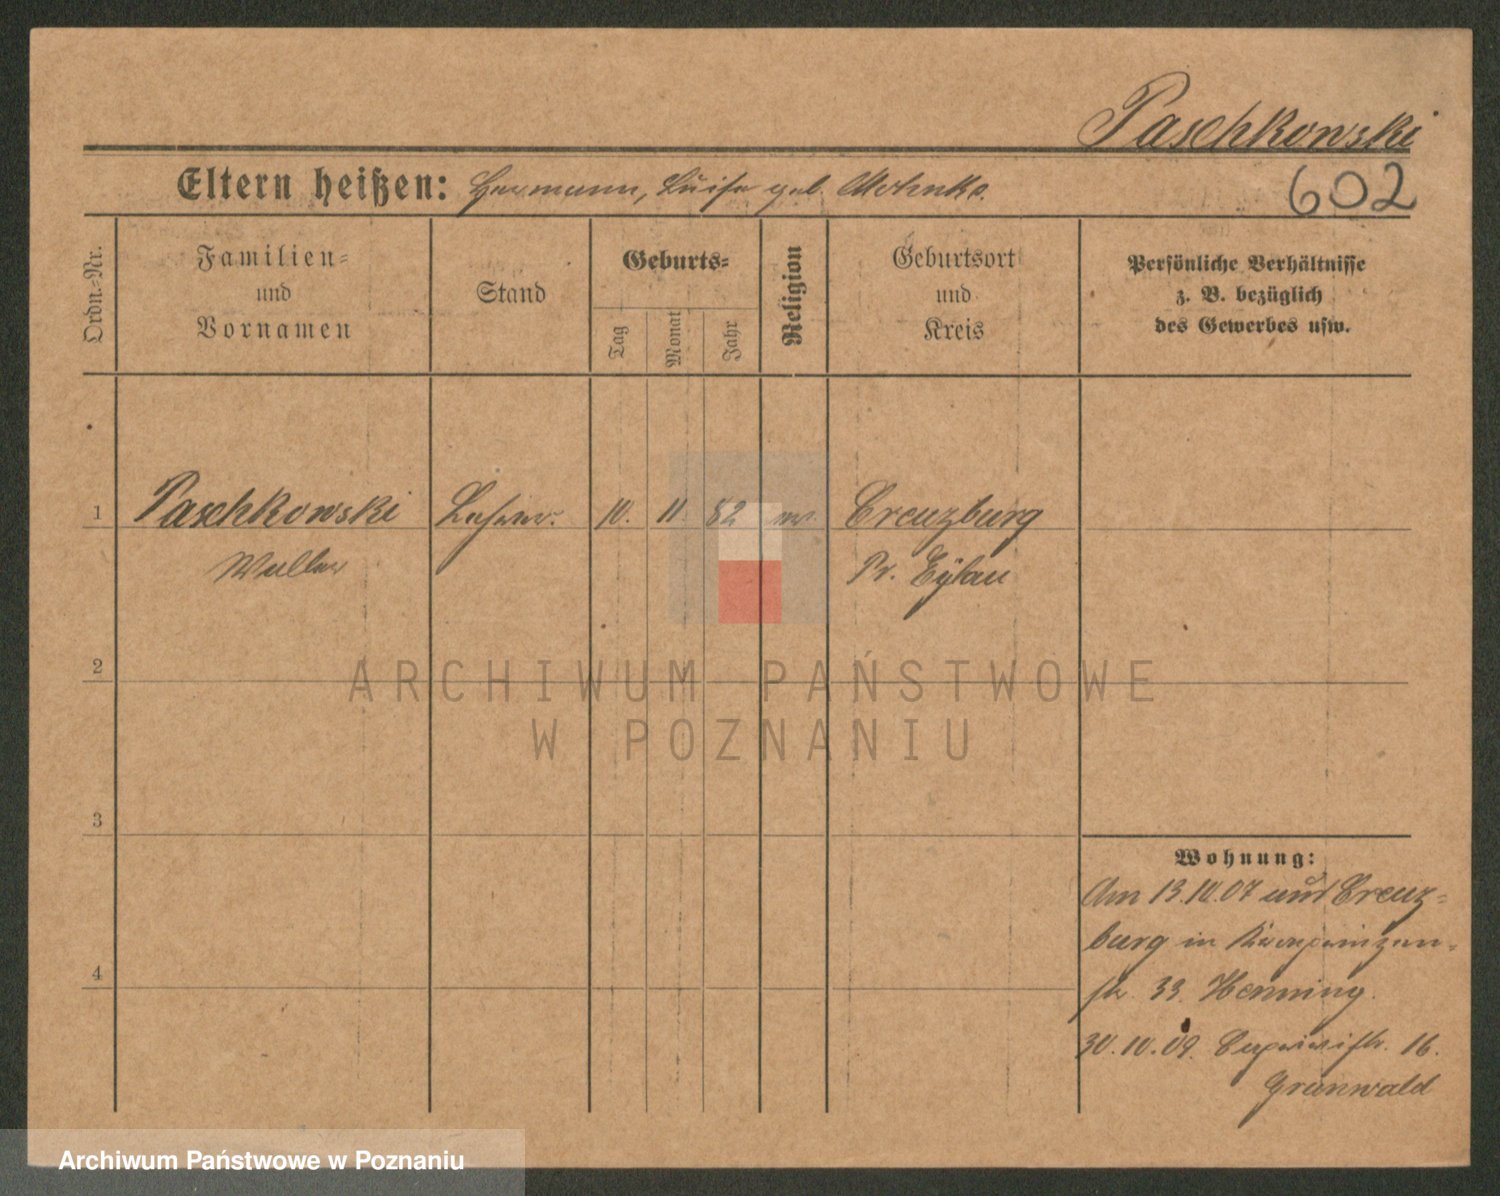 Paschkowski
602
Eltern heißen: Hermann, Luise geb.
Ordn.-Nr.
Familien=
und
Vornamen
Stand
Geburts=
Tag
Monat
Jahr
Religion
Geburtsort
und
Kreis
Persönliche Verhältnisse
z. B. bezüglich
des Gewerbes usw.
1
Paschkowski
Lehrer.
10.
11
82
ev.
Creuzburg
Pr. Eylau
2
3
4
Wohnung:
Am 13.10.07 aus Creuz=
burg in Kronprinzen=
str. 33. Henning.
30.10.09. 16.
Grunwald
ARCHIWUM PAŃSTWOWE
W POZNANIU
Archiwum Państwowe w Poznaniu